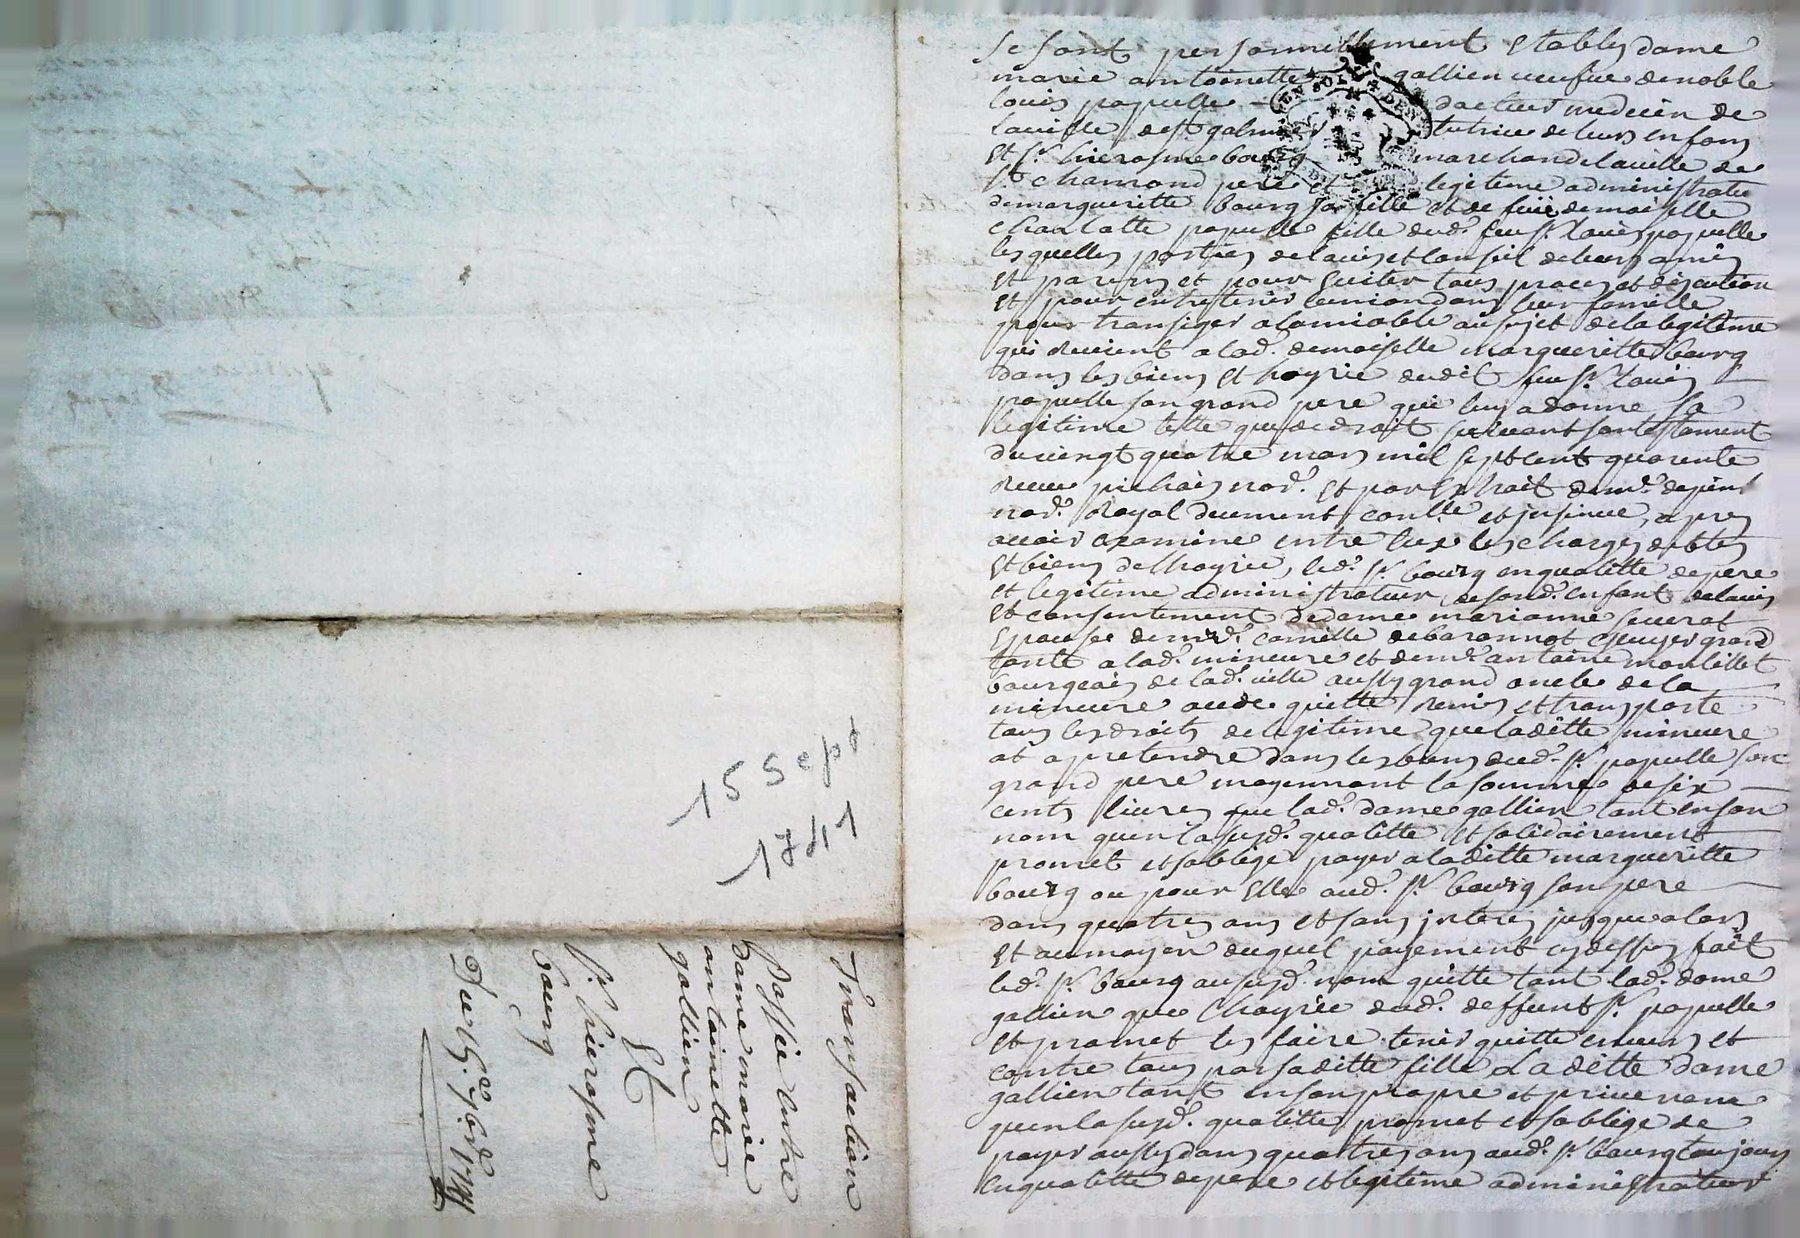 15 Sept
1741
Transaction
Passée entre
dame marie
antoinette
gallien
Et
Sr. hierosme
bourg
Du 15e. 7bre 1741
Se sont personnellement Establys dame
marie antoinette gallien veufue de noble
louis papuelle docteur medecin de
la ville de st. galmier tutrice de leurs enfans
Et sr. hierosme bourg marchand de la ville de
st. chamond pere et legitime administrateur
de margueritte bourg sa fille et de fuë demoiselle
charlotte papuelle fille dud. feu sr. Louis papuelle
lesquelles parties de lavis et Conseil de leurs amis
et parens et pour Eviter tous proces et discution
Et pour entretenir lunion dans leur famille
pour transiger a lamiable au sujet de la legitime
qui revient a lad. demoiselle margueritte bourg
dans les biens Et hoyrie dudit feu sr. Louis
papuelle son grand pere qui luy a donné sa
legitime telle que de droit suivant son testament
du vingt quatre mars mil sept cent quarente
receu not. Et par Extrait de me.
not. Royal duement conllé et insinué, apres
avoir examiné entre eux les charges debtes
Et biens de lhoyrie, led. sr. bourg en qualitté de pere
et legitime administrateur de sond. enfant de lavis
et consentement de dame marianne
Epouse de camille de baronnat Ecuyer grand
tante a lad. mineure et de mr. antoine montillet
bourgeois de lad. ville aussy grand oncle de la
mineure cede quitte remis et transporte
tous les droits de legitime que laditte mineure
at a pretendre dans les biens dud. sr. papuelle son
grand pere moyennant la somme de six
cents livres que lad. dame gallien tant en son
nom quen la susd. qualitté Et solidairement
promet et soblige payer a laditte margueritte
bourg ou pour Elle aud. sr. bourg son pere
dans quatres ans et sans interes jusques alors
Et au moyen duquel payement cy dessus fait
led. sr. bourg au susd. nom quitte tant lad. dame
gallien que lhoyrie dud. deffunt sr. papuelle
et promet les faire tenir quitte envers et
contre tous par saditte fille Laditte dame
gallien tant en son propre et privé nom
quen la susd. qualitté promet et soblige de
payer aussy dans quatres ans aud. sr. bourg toujours
en qualitté de pere et legitime administrateur